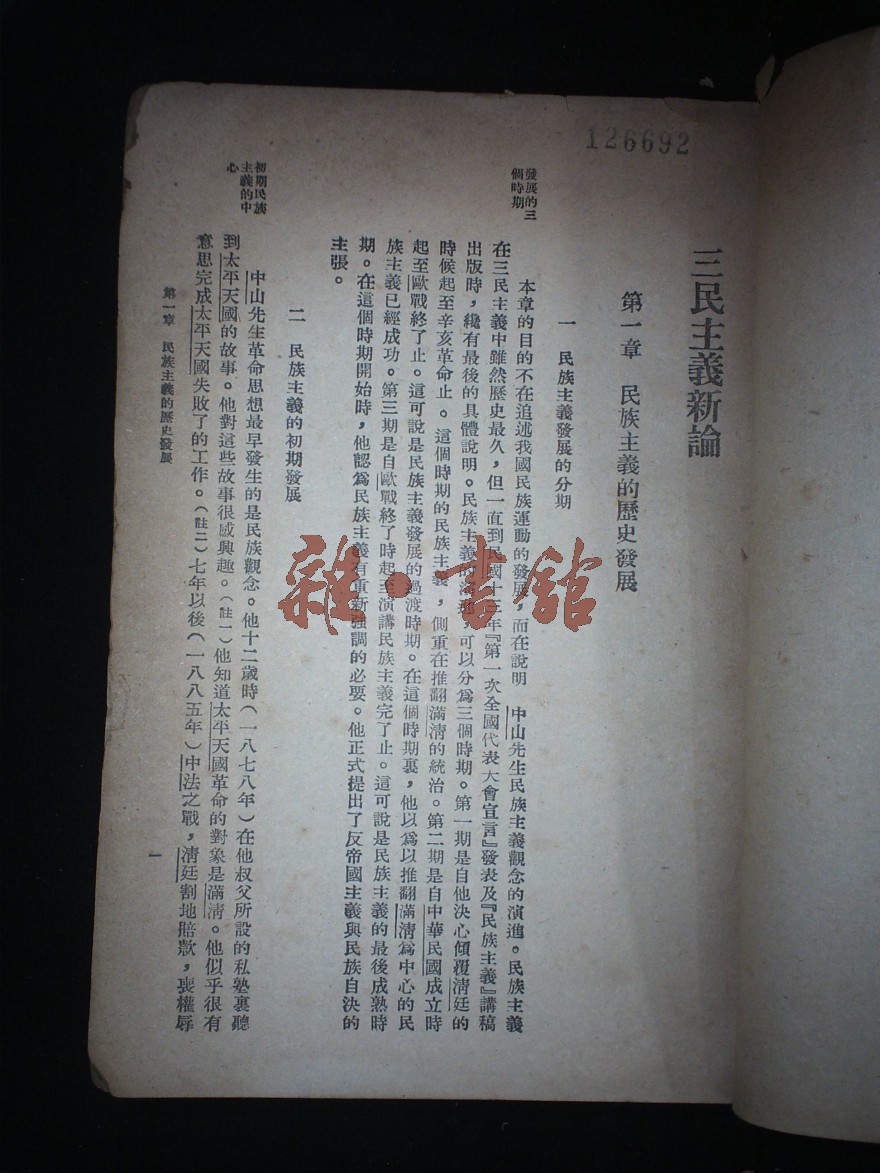 126692
三民主義新論
第一章　民族主義的歷史發展
一　民族主義發展的分期
發展的三
個時期
本章的目的不在追述我國民族運動的發展，而在說明　中山先生民族主義觀念的演進。民族主義
在三民主義中雖然歷史最久，但一直到民國十三年『第一次全國代表大會宣言』發表及『民族主義』講稿
出版時，纔有最後的具體說明。民族主義的演進，可以分爲三個時期。第一期是自他決心傾覆淸廷的
時候起至辛亥革命止。這個時期的民族主義，側重在推翻滿淸的統治。第二期是自中華民國成立時
起至歐戰終了止。這可說是民族主義發展的過渡時期。在這個時期裏，他以爲以推翻滿淸爲中心的民
族主義已經成功。第三期是自歐戰終了時起至演講民族主義完了止。這可說是民族主義的最後成熟時
期。在這個時期開始時，他認爲民族主義有重新強調的必要。他正式提出了反帝國主義與民族自決的
主張。
二　民族主義的初期發展
初期民族
主義的中
心
中山先生革命思想最早發生的是民族觀念。他十二歲時（一八七八年）在他叔父所設的私塾裏聽
到太平天國的故事。他對這些故事很感興趣。（註一）他知道太平天國革命的對象是滿淸。他似乎很有
意思完成太平天國失敗了的工作。（註二）七年以後（一八八五年）中法之戰，淸廷割地賠款，喪權辱
第一章　民族主義的歷史發展
一
雜·書館